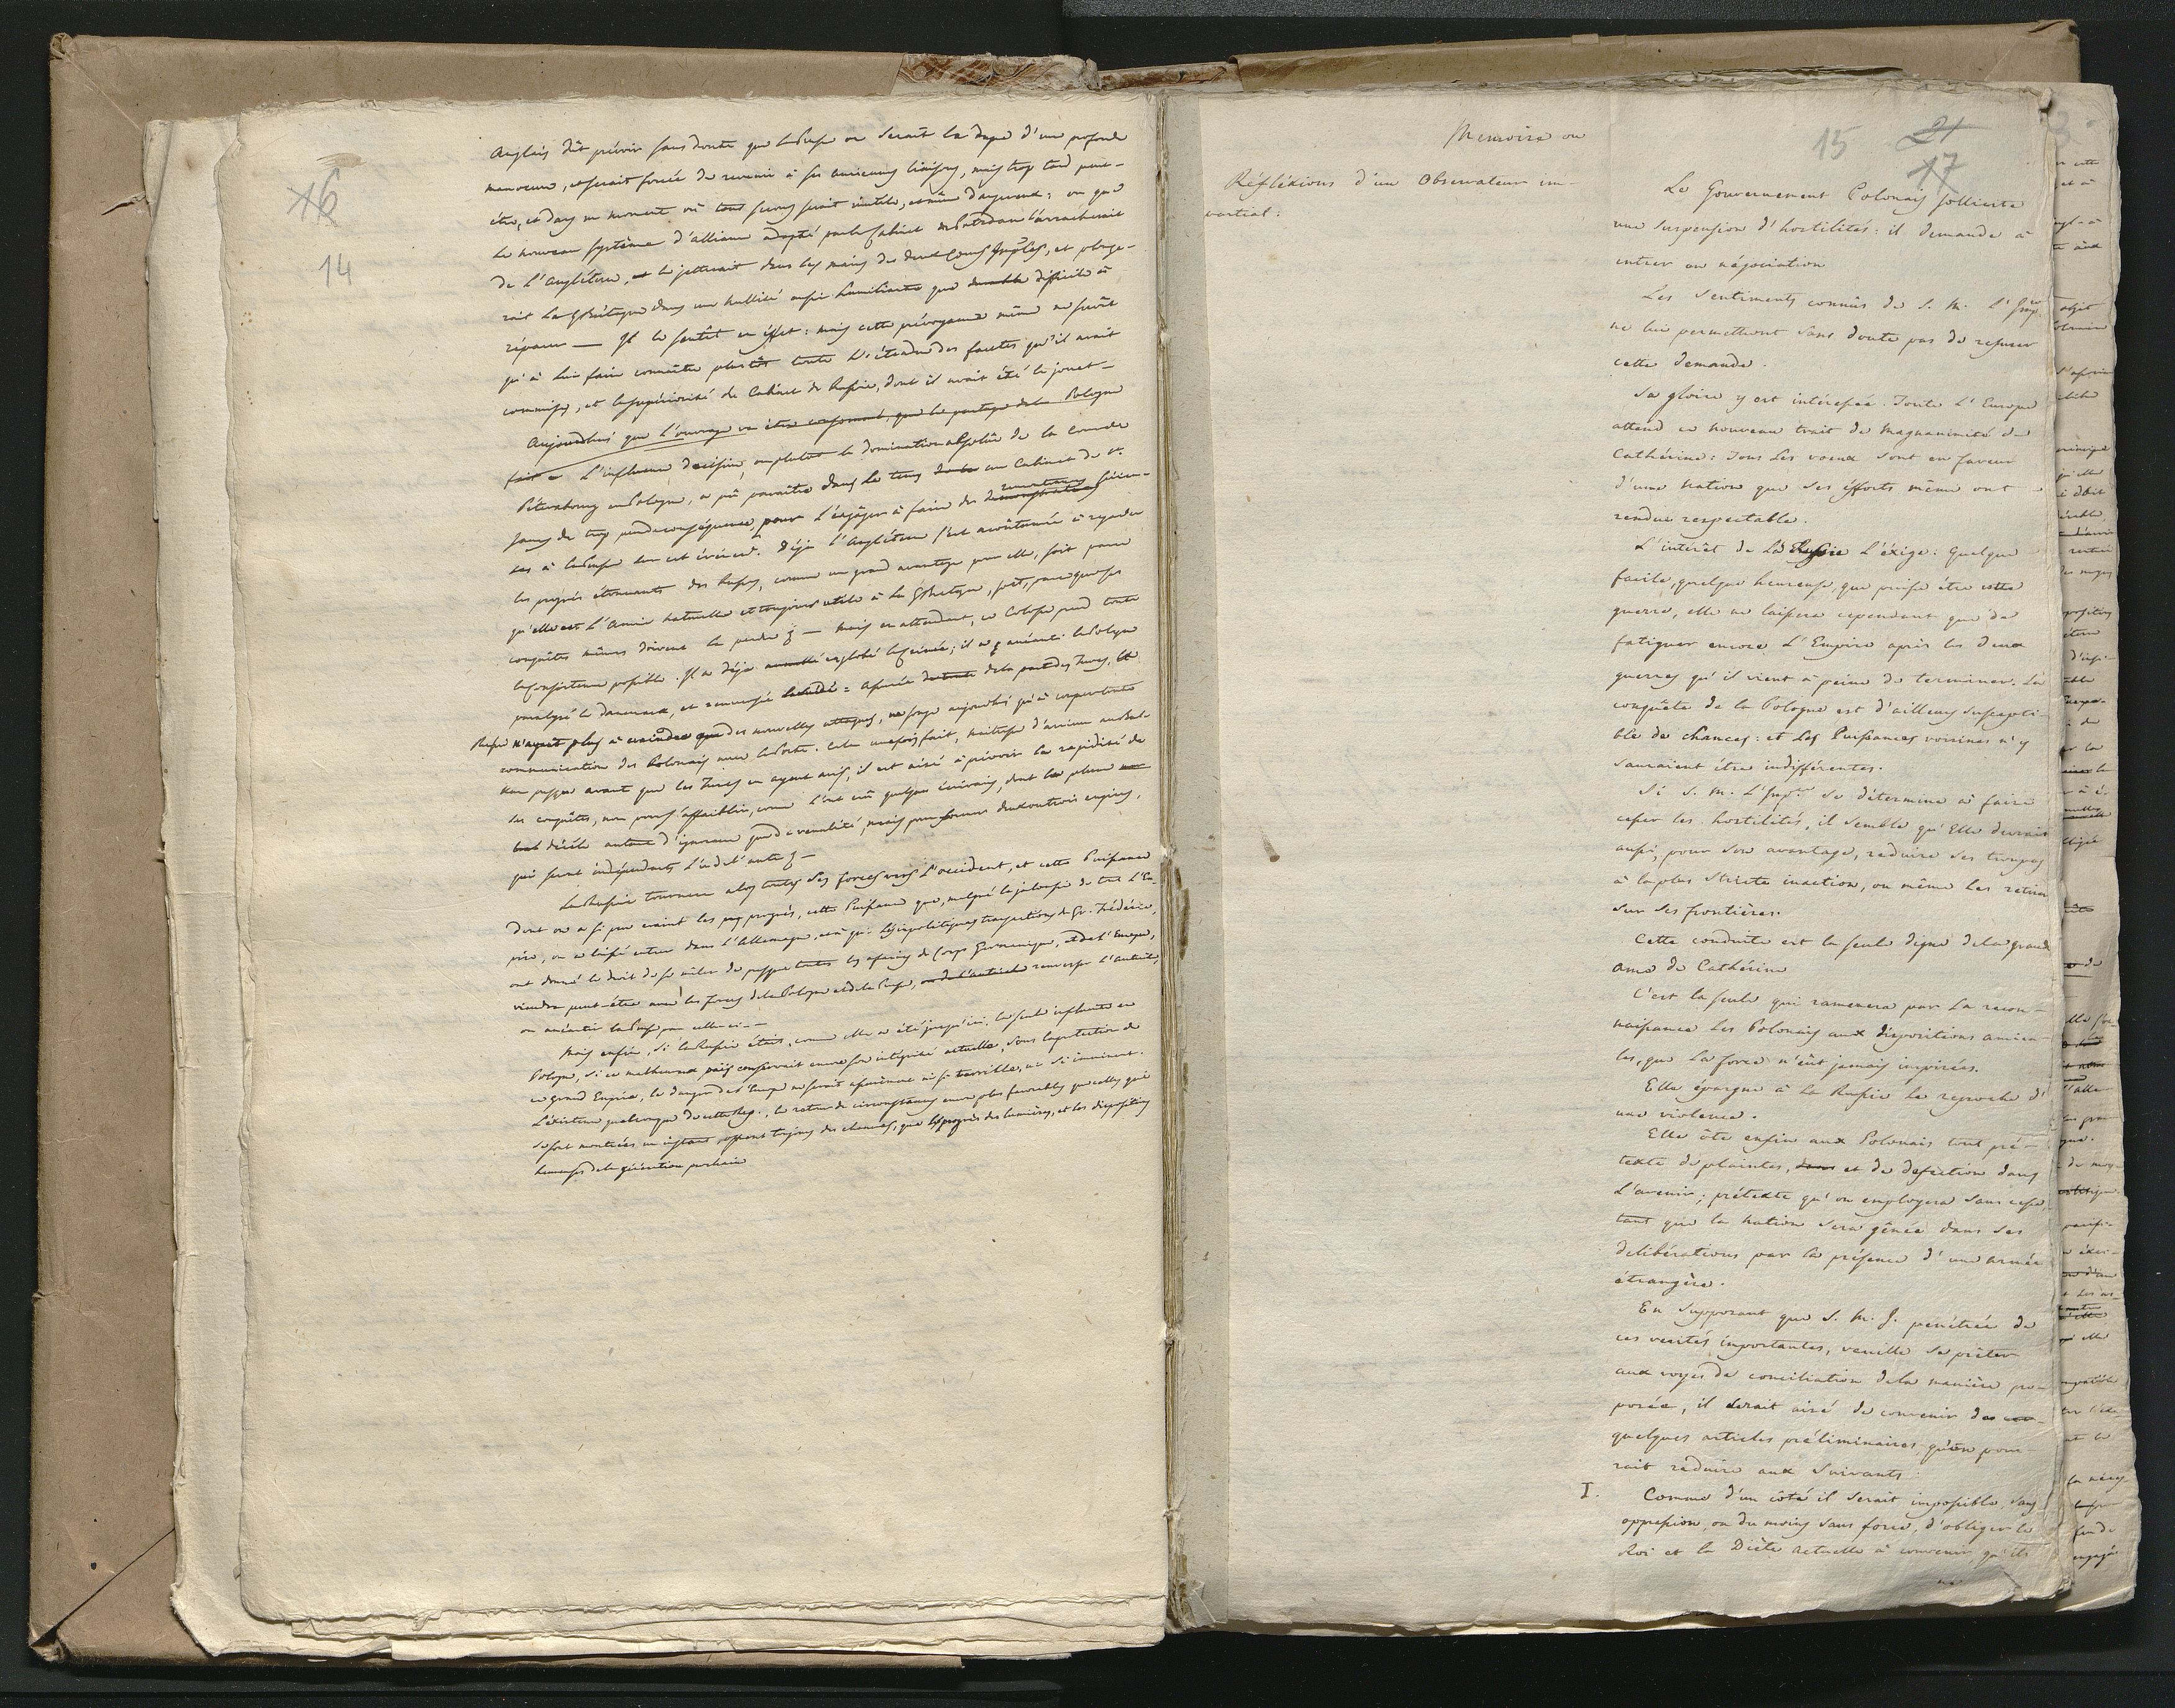 16
14
Anglais dût prévoir sans doute que la Prusse ou serait la dupe d'une profonde
manoeuvre, et serait forcée de revenir à ses anciennes liaisons, mais trop tard peut-
être, et dans un moment où tout secours serait inutile, et même dangereux; ou que
le nouveau système d'alliance adopté par le Cabinet de Potzdam l'arracherait
de l'Angleterre, et le jetterait dans les mains des deux Cours Imples, et plonge-
rait la GBretagne dans une nullité aussi humiliante que difficile à
réparer — Il le sentît en effet: mais cette prévoyance même ne servît
qu'à lui faire connaître plustôt toute l'étendue des fautes qu'il avait
commises, et la supériorité du Cabinet de Russie, dont il avait été le jouet—
Aujourdhui que l'ouvrage va être consommé, que le partage de la Pologne
fait L'influence décisive, ou plutôt la domination absolüe de la Cour de
Pétersbourg en Pologne, a pû paraître dans le tems au Cabinet de St.
James de trop peu de conséquence, pour l'engager à faire des démonstrations
à la Russe sur cet événemt. Déja l'Angleterre s'est accoutumée à regarder
les progrès étonnants des Russes, comme un grand avantage pour elle, soit parce
qu'elle est l'amie naturelle et toujours utile à la GBretagne, soit, parce que ses
conquêtes mêmes doivent la perdre — Mais en attendant, ce Colosse prend toute
la consistence possible. Il a déja englobé la Crimée; il a anéanti la Pologne
paralysé le Danemarck, et renversé la Suède: assurée de la part des Turcs, la
Russie n'ayant plus à craindre que des nouvelles attaques, ne songe aujourdhui qu'à
communication des Polonais avec la Porte. Cela une fois fait, maîtresse d'arriver
presque avant que les Turcs en ayent avis, il est aisé à prévoir la rapidité de
ses conquêtes, non pour s'affaiblir, comme l'ont crû quelques écrivains, dont la plume
décèle autant d'ignorance que de vénalité, mais pour former deux ou trois empires,
qui seront indépendants l'un de l'autre —
La Russie tournera alors toutes ses forces vers l'occident, et cette Puissance
dont on a si peu craint les progrès, cette Puissance que, malgré la jalousie de tte l'Eu-
rope, on a laissé entrer dans l'Allemagne, et à qui les impolitiques transactions du Gr. Frédéric,
ont donné le droit de se mêler de presque toutes les affaires du Corps Germanique, et de l'Europe,
viendra peut-être avec les forces de la Pologne et de la Prusse, renverser l'Autriche,
ou anéantir la Prusse par celle-ci —
Mais enfin, si la Russie était, comme elle a été jusqu'ici, la seule influente en
Pologne, si ce malheureux pais conservait encore son intégrité actuelle, sous la protection de
ce grand Empire, le danger de l'Europe ne serait assurément ni si terrible, ni si imminent.
L'existence quelconque de cette Rep., le retour de circonstances encore plus favorables que celles qui
se sont montrées un instant offrent toujours des chances, que les progrès des lumières, et les dispositions
heureuses de la génération prochaine
Memoire ou
Réfléxions d'un Observateur im-
partial:
15
21
17
Le Gouvernement Polonais sollicite
une suspension d'hostilités: il demande à
entrer en négociation
Les sentiments connûs de S. M. l'Impce
ne lui permettront sans doute pas de refuser
cette demande.
Sa gloire y est intéressée. Toute l'Europe
attend ce nouveau trait de magnanimité de
Cathérine: Tous les voeux sont en faveur
d'une nation que ses éfforts même ont
rendue respectable.
L'intérêt de la Russie l'éxige: Quelque
facile, quelque heureuse, que puisse être cette
guerre, elle ne laissera cependant que de
fatiguer encore l'Empire après les deux
guerres qu'il vient à peine de terminer. La
conquête de la Pologne est d'ailleurs suscepti-
ble de chances: et les Puissances voisines n'y
sauraient être indifférentes.
Si S. M. l'Impce se détermine à faire
cesser les hostilités, il semble qu'Elle devrait
aussi, pour son avantage, réduire ses troupes
à la plus stricte inaction, ou même les retirer
sur ses frontières.
Cette conduite est la seule digne de la grande
ame de Cathérine
C'est la seule qui ramenera par la recon-
naissance les Polonais aux dispositions amica-
les, que la force n'eût jamais inspirées.
Elle épargne à la Russie le reproche d'
une violence.
Elle ôte enfin aux Polonais tout pré-
texte de plaintes, et de defection dans
l'avenir; prétexte qu'on employera sans cesse,
tant que la nation sera gênée dans ses
délibérations par la présence d'une armée
étrangère.
En supposant que S. M. I. penétrée de
ces verités importantes, veuille se prêter
aux voyes de conciliation de la manière pro-
posée, il serait aisé de convenir de
quelques articles préliminaires, qu'on pour-
rait réduire aux suivants:
I. Comme d'un côté il serait impossible, sans
oppression, ou du moins sans force, d'obliger le
Roi et la Diète actuelle à convenir, qu'ils